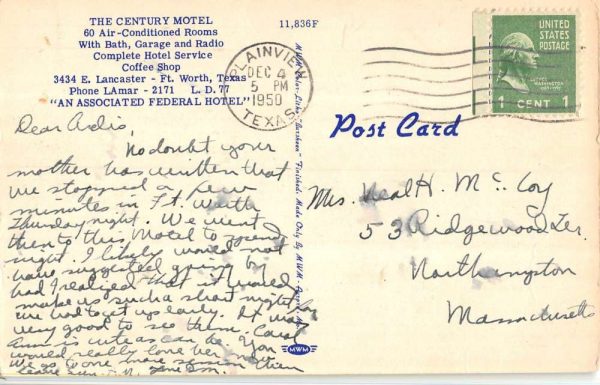 THE CENTURY MOTEL
60 Air-Conditioned Rooms
With Bath, Garage and Radio
Complete Hotel Service
Coffee Shop
3434 E. Lancaster - Ft. Worth, Texas
Phone LAmar - 2171 L. D. 77
"AN ASSOCIATED FEDERAL HOTEL"
11,836F
PLAINVIEW
DEC 4
5 PM
1950
TEXAS
UNITED
STATES
POSTAGE
1 CENT 1
Post Card
MWM
Dear Ardis,
No doubt your
mother has written that
we stopped a few
minutes in Ft. Worth
Thursday night. We went
then to this Motel to spend
night. I likely would not
have suggested going by
had I realized that it would
make us such a short night, for
we had to get up early. It was
very good to see them. Carol
Ann is cute as can be. You
would really love her. Now
Mrs. Neal H. McCoy
53 Ridgewood Ter.
Northampton
Massachusetts